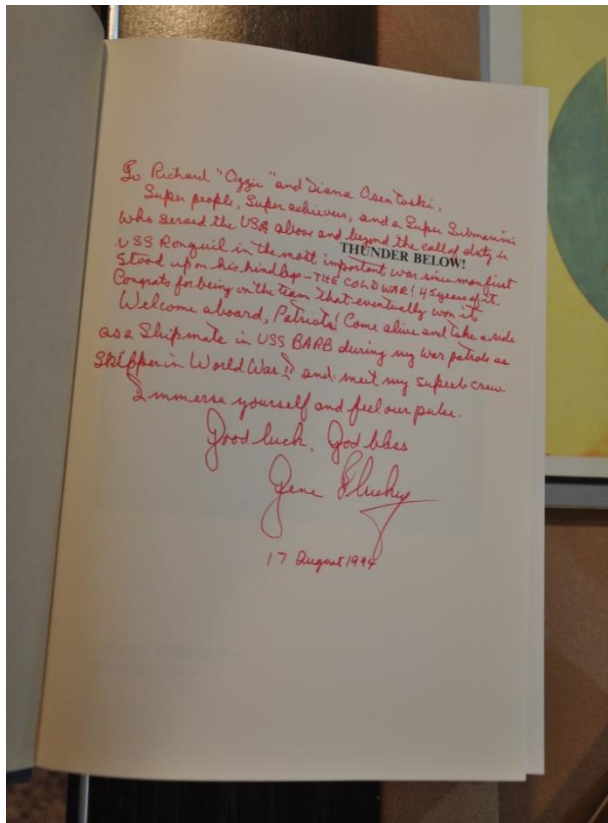 To Richard "Ozzie" and Diana Osentoski,
Super people, Super achievers, and a Super Submariner
who served the USA above and beyond the call of duty in
USS Ronquil in the most important war since man first
THUNDER BELOW!
stood up on his hind legs - THE COLD WAR! 45 years of it.
Congrats for being on the team that eventually won it.
Welcome aboard, Patriots! Come alive and take a ride
as a Shipmate in USS BARB during my war patrols as
Skipper in World War II and meet my superb crew.
Immerse yourself and feel our pulse.
Good luck, God bless
Gene Fluckey
17 August 1994